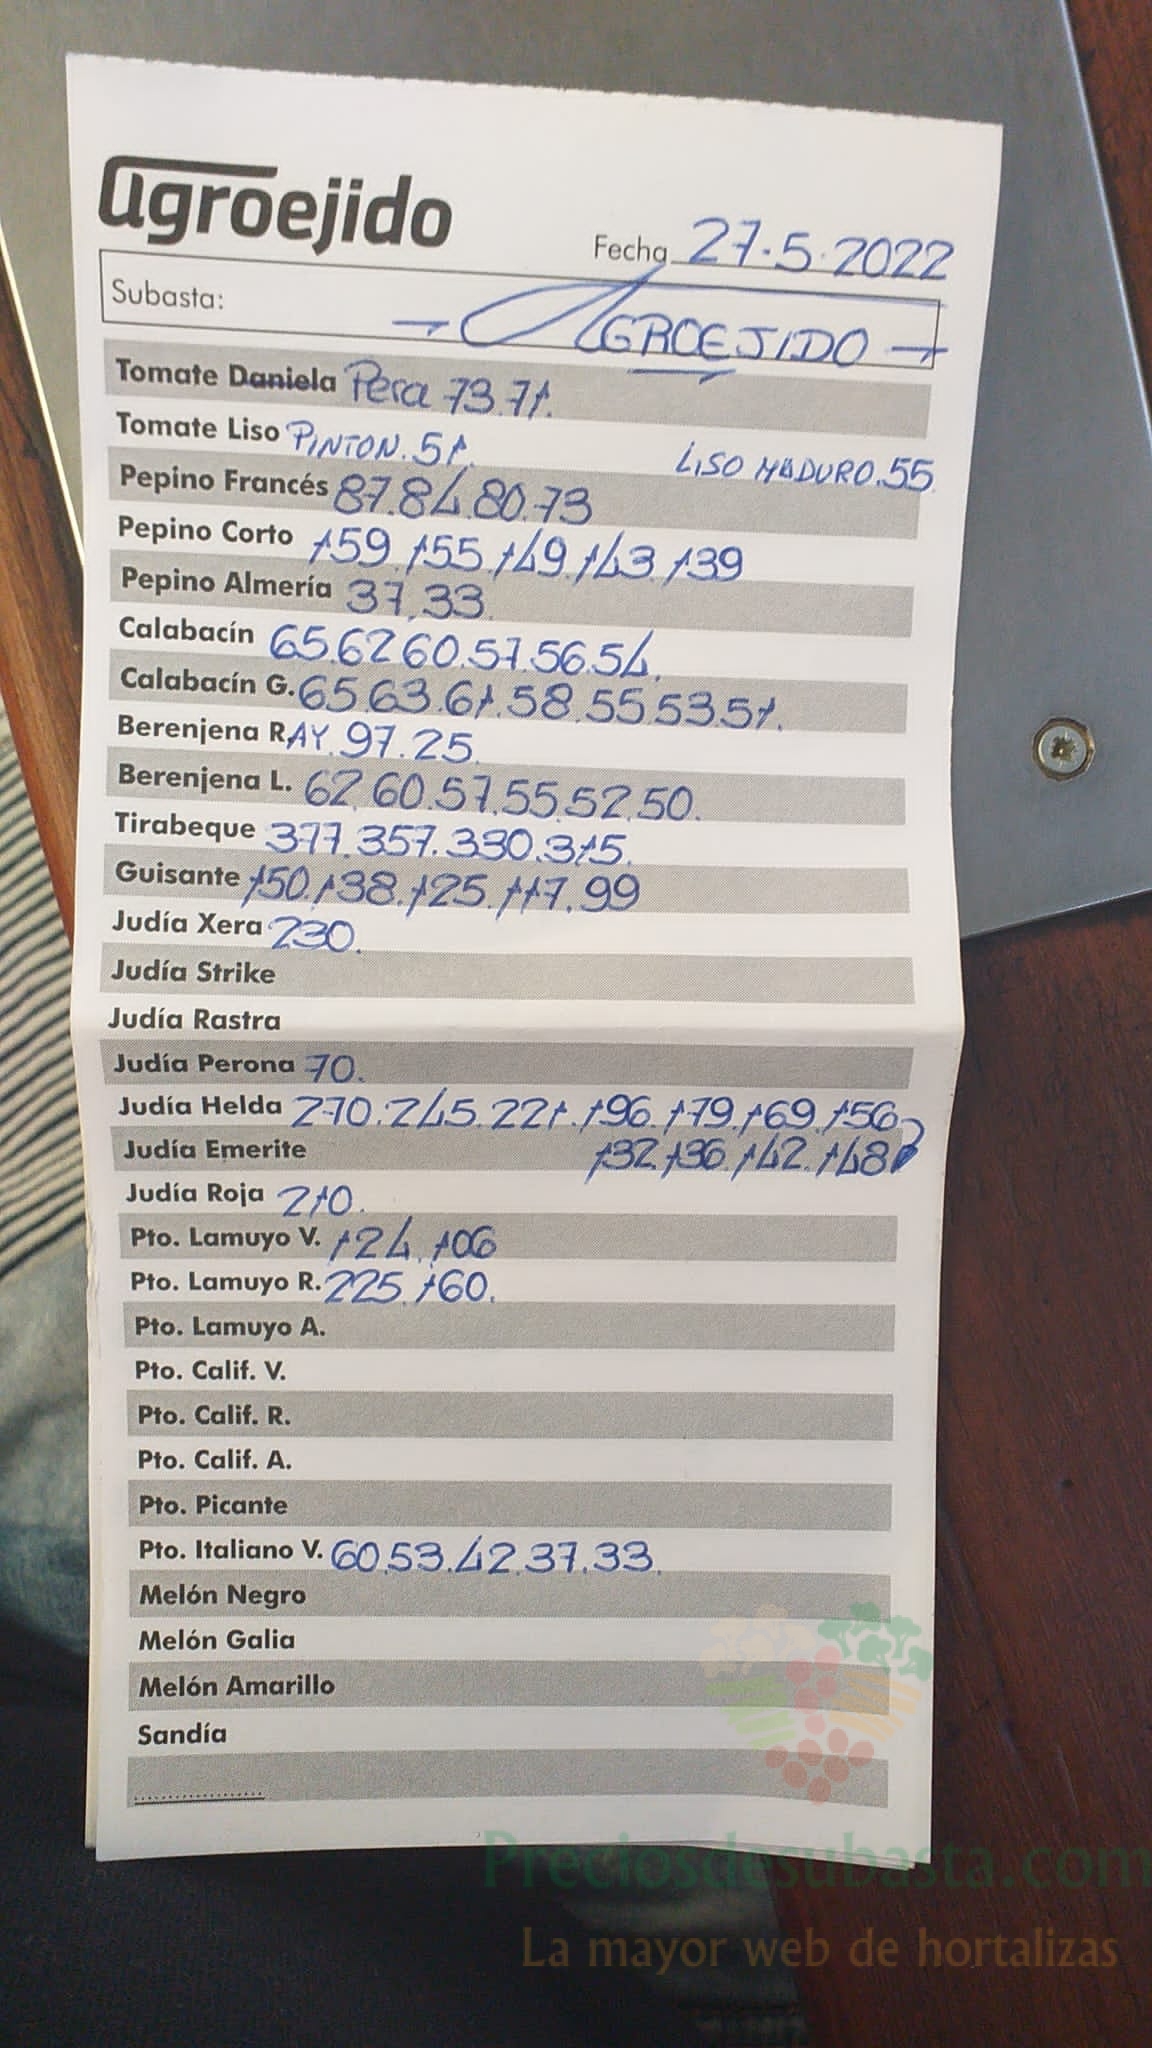 agroejido
Fecha 27.5.2022
Subasta: AGROEJIDO
Tomate Daniela Pera 73.71.
Tomate Liso PINTON. 51. LISO MADURO. 55.
Pepino Francés 87.84.80.73
Pepino Corto 159.155.149.143.139
Pepino Almería 37.33.
Calabacín 65.62.60.57.56.54.
Calabacín G. 65.63.61.58.55.53.51.
Berenjena RAY. 97.25.
Berenjena L. 62.60.57.55.52.50.
Tirabeque 377.357.330.315.
Guisante 150.138.125.117.99
Judía Xera 230.
Judía Strike
Judía Rastra
Judía Perona 70.
Judía Helda 270.245.221.196.179.169.156
Judía Emerite 132.136.142.148
Judía Roja 210.
Pto. Lamuyo V. 124.106
Pto. Lamuyo R. 225.160.
Pto. Lamuyo A.
Pto. Calif. V.
Pto. Calif. R.
Pto. Calif. A.
Pto. Picante
Pto. Italiano V. 60.53.42.37.33.
Melón Negro
Melón Galia
Melón Amarillo
Sandía
Preciosdesubasta.com
La mayor web de hortalizas